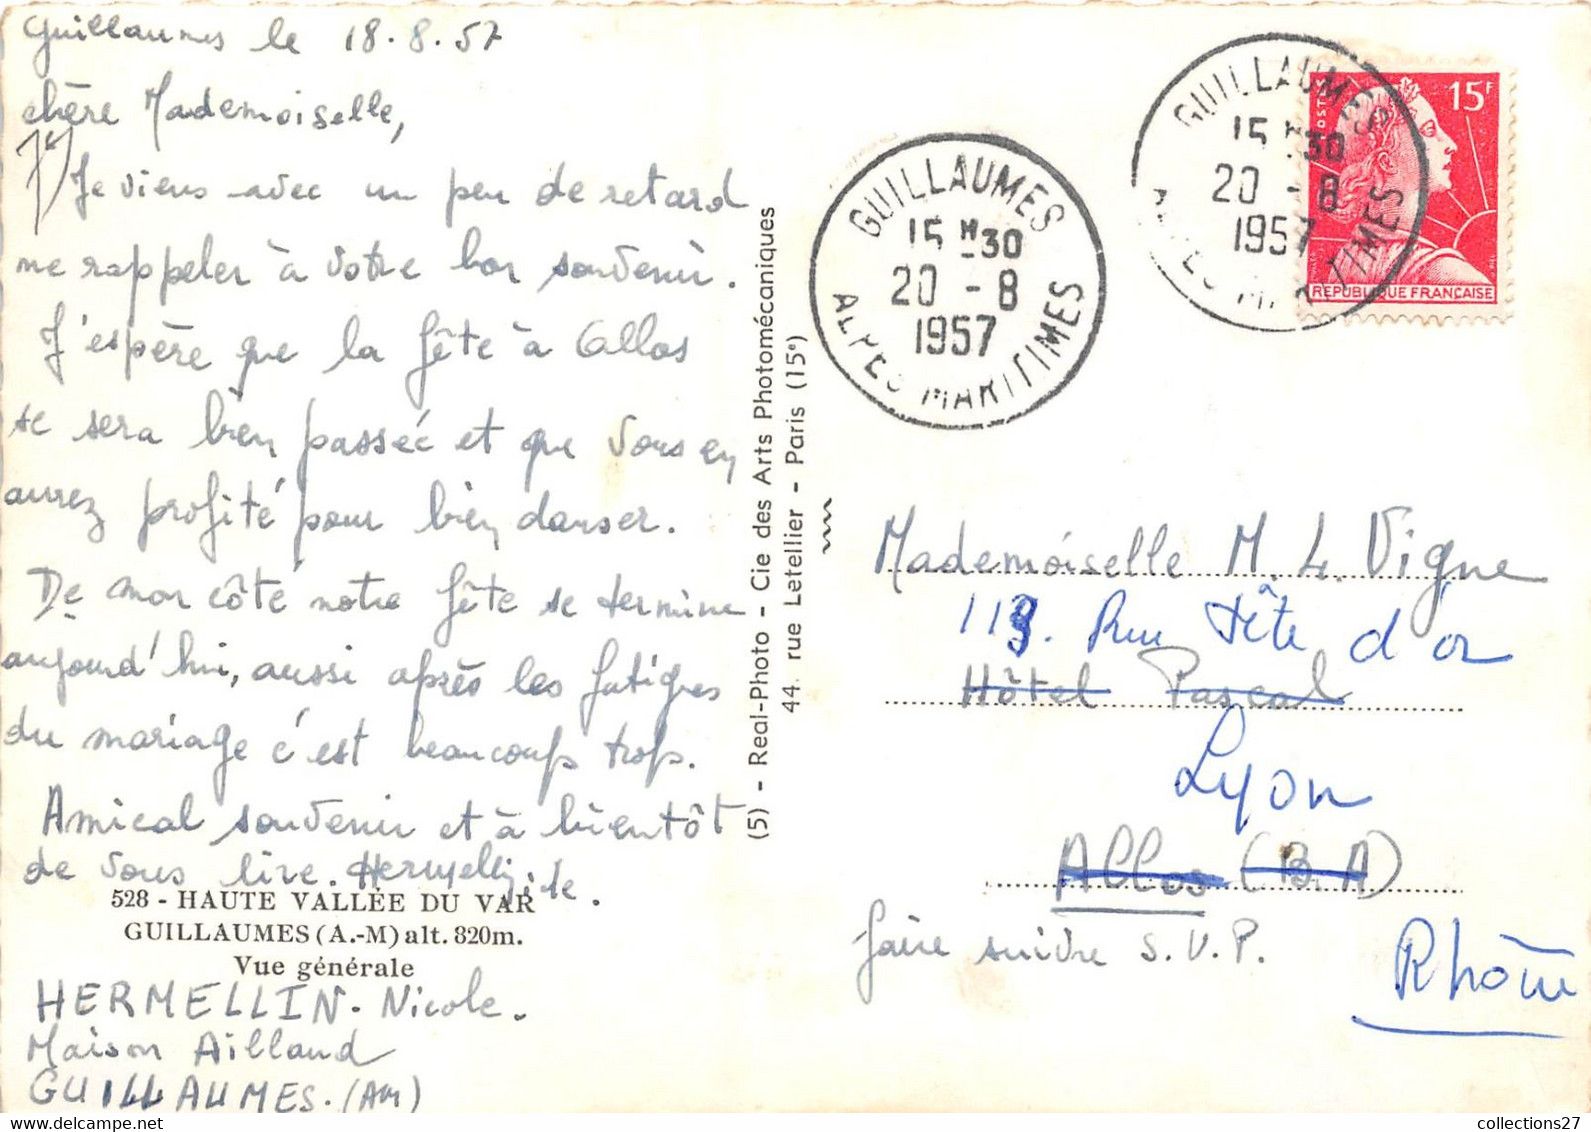 Guillaumes le 18.8.57
chère Mademoiselle,
Je viens avec un peu de retard
me rappeler à votre bon souvenir.
J'espère que la fête à Allos
se sera bien passée et que vous en
aurez profité pour bien danser.
De mon côté notre fête se termine
aujourd'hui, aussi après les fatigues
du mariage c'est beaucoup trop.
Amical souvenir et à bientôt
de vous lire. Hermellin
528 - HAUTE VALLÉE DU VAR
GUILLAUMES (A.-M) alt. 820m.
Vue générale
HERMELLIN - Nicole.
Maison Ailland
GUILLAUMES. (AM)
(5) - Real-Photo - Cie des Arts Photomécaniques
44. rue Letellier - Paris (15e)
GUILLAUMES
15 H 30
20 - 8
1957
ALPES MARITIMES
GUILLAUMES
15 H 30
20 - 8
1957
ALPES MARITIMES
POSTES
15F
REPUBLIQUE FRANÇAISE
Mademoiselle M. L. Vigne
Rue Tête d'or
Hôtel Pascal
Lyon
Allos (B. A)
faire suivre S.V.P.
Rhône
collections27